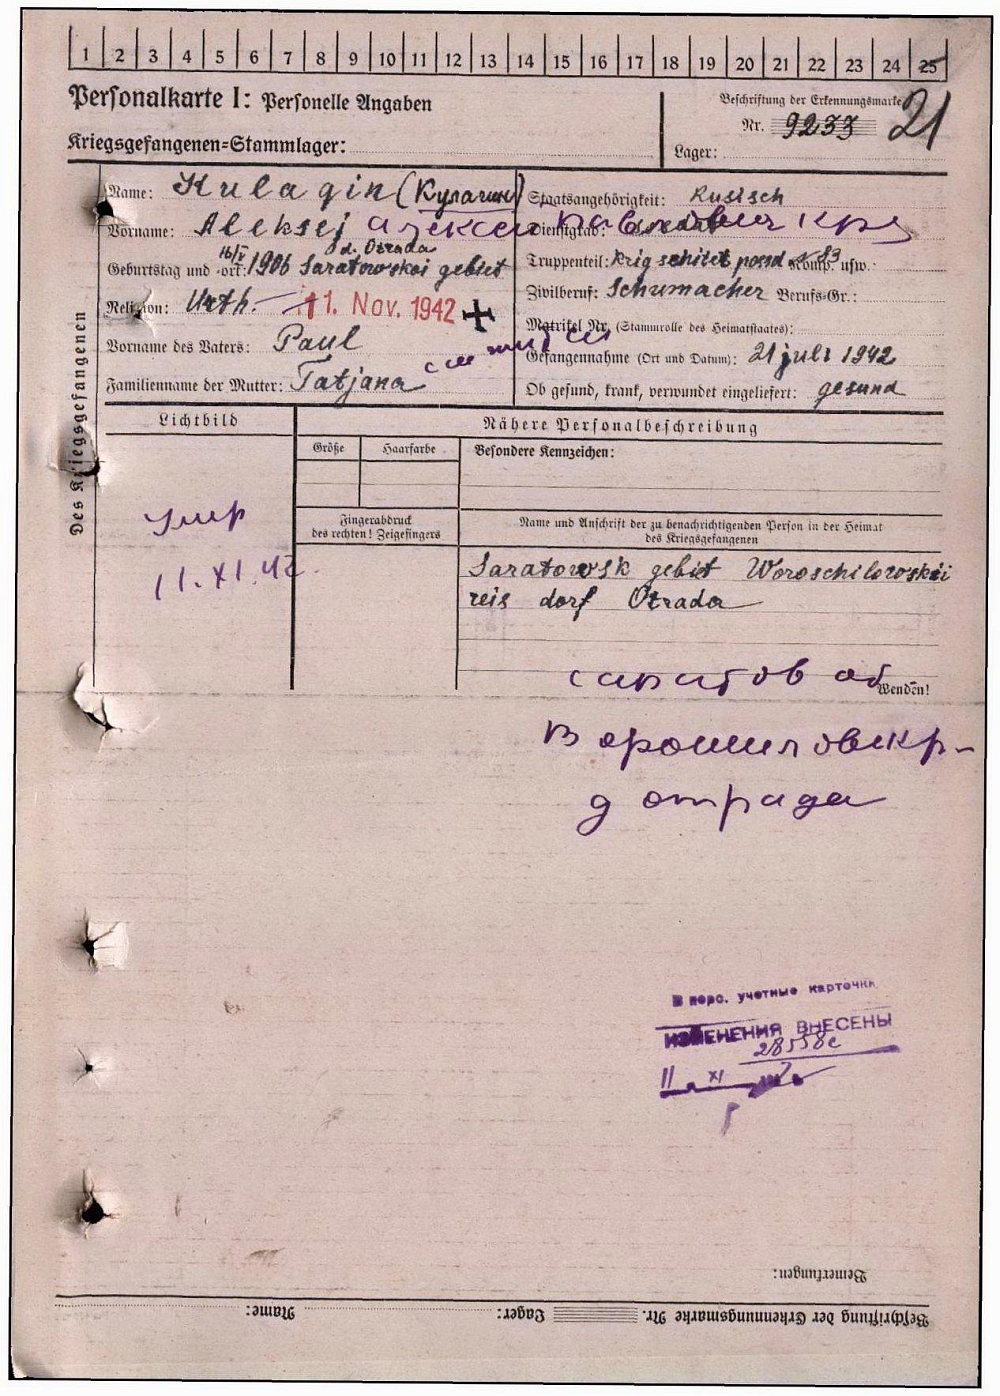 1 2 3 4 5 6 7 8 9 10 11 12 13 14 15 16 17 18 19 20 21 22 23 24 25
Personalkarte I: Personelle Angaben
Beschriftung der Erkennungsmarke
Nr. 9233 21
Kriegsgefangenen-Stammlager:
Lager:
Des Kriegsgefangenen
Name: Kulagin (Кулагин)
Staatsangehörigkeit: Rusisch
Vorname: Aleksej Алексей Павлович кр
Dienstgrad:
16/V d. Otrada
Geburtstag und -ort: 1906 Saratowskoi gebiet
Truppenteil: Komp. usw.:
Religion: 11. Nov. 1942
Zivilberuf: Schumacher Berufs-Gr.:
Matrikel Nr. (Stammrolle des Heimatstaates):
Vorname des Vaters: Paul
Gefangennahme (Ort und Datum): 21 juli 1942
Familienname der Mutter: Tatjana
Ob gesund, krank, verwundet eingeliefert: gesund
Lichtbild
Nähere Personalbeschreibung
Größe
Haarfarbe
Besondere Kennzeichen:
умер
11.XI.42.
Fingerabdruck
des rechten! Zeigefingers
Name und Anschrift der zu benachrichtigenden Person in der Heimat
des Kriegsgefangenen
Saratowsk gebiet Woroschilowskoi
reis dorf Otrada
саратов об
Wenden!
Ворошиловск р-
д отрада
В перс. учетные карточки
ИЗМЕНЕНИЯ ВНЕСЕНЫ
28558с
11 XI
Bemerkungen:
Name: Lager: Beschriftung der Erkennungsmarke Nr.